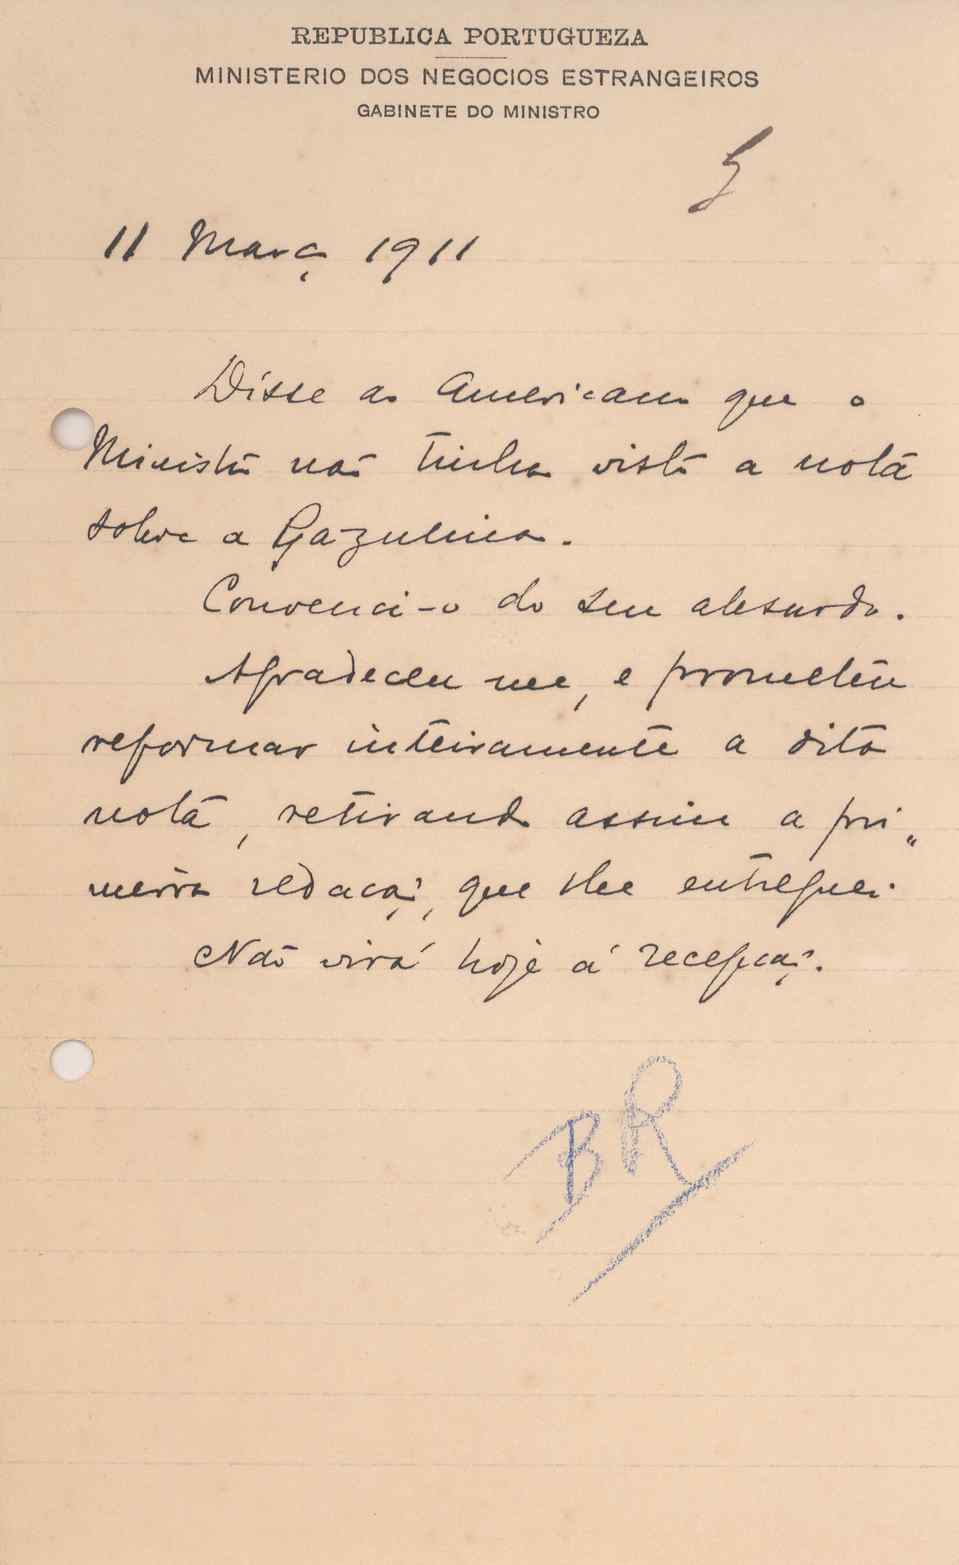 REPUBLICA PORTUGUEZA
MINISTERIO DOS NEGOCIOS ESTRANGEIROS
GABINETE DO MINISTRO
11 Março 1911
Disse ao Americano que o
Ministro não tinha visto a nota
sobre a Gazolina.
Convenci-o do seu absurdo.
Agradeceu me, e prometeu
reformar inteiramente a dita
nota, retirando assim a pri„
meira redação, que lhe entreguei.
Não virá hoje á recepção.
BR